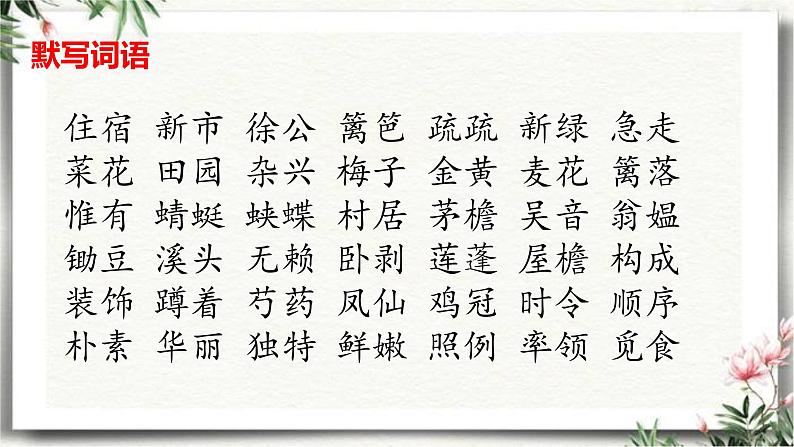 默写词语
住宿 新市 徐公 篱笆 疏疏 新绿 急走
菜花 田园 杂兴 梅子 金黄 麦花 篱落
惟有 蜻蜓 蛱蝶 村居 茅檐 吴音 翁媪
锄豆 溪头 无赖 卧剥 莲蓬 屋檐 构成
装饰 蹲着 芍药 凤仙 鸡冠 时令 顺序
朴素 华丽 独特 鲜嫩 照例 率领 觅食